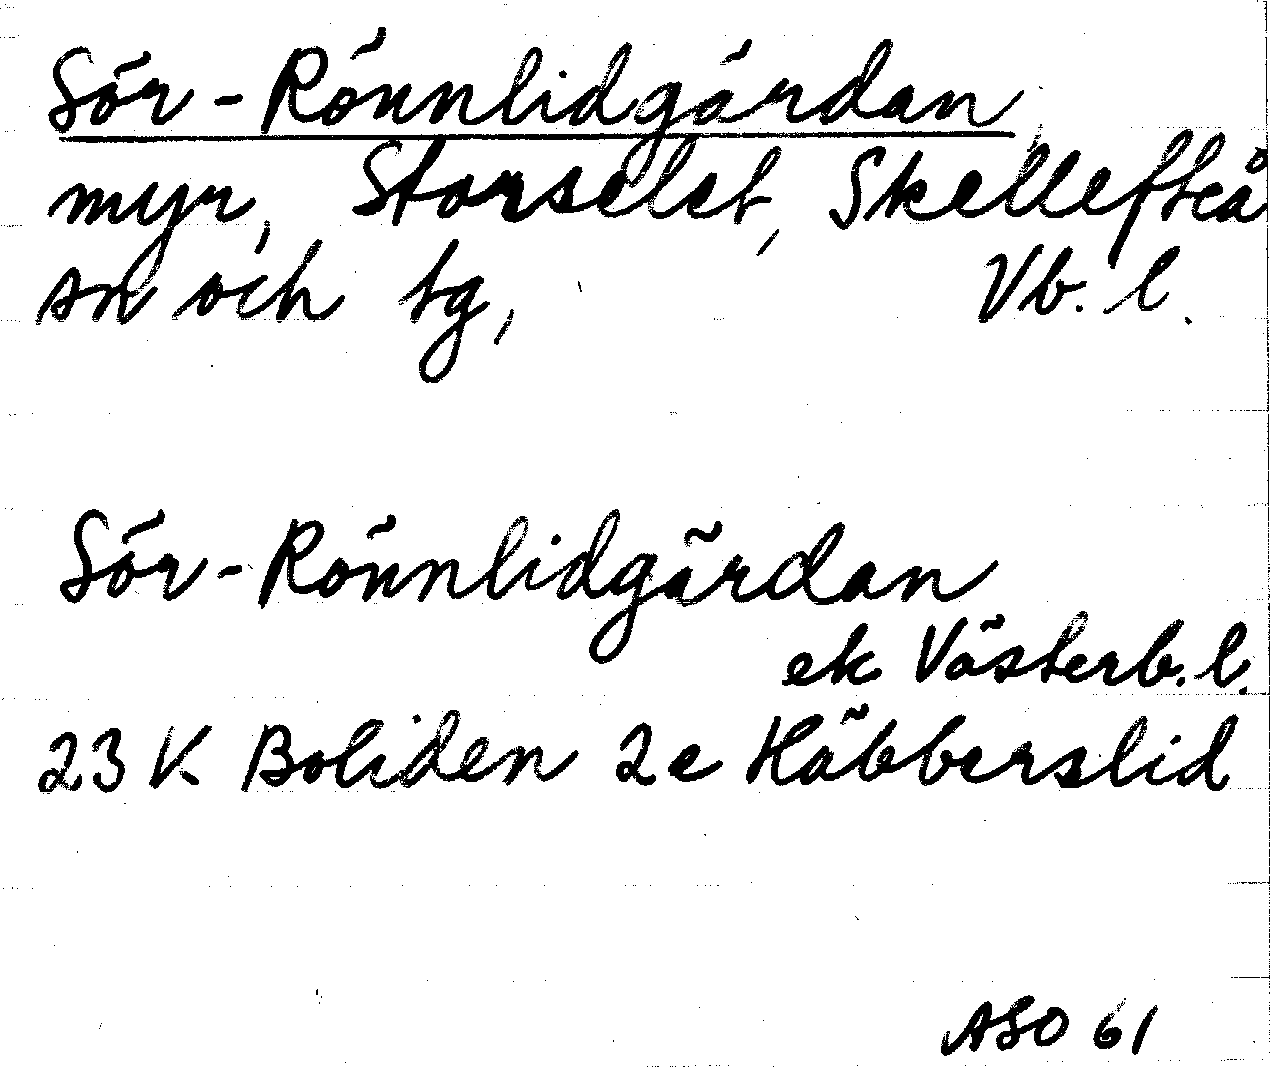 Sör-Rönnlidgärdan,
myr, Storselet, Skellefteå
sn och tg, Vb. l.
Sör-Rönnlidgärdan
ek Västerb. l.
23 K Boliden 2e Häbberslid
ASO 61